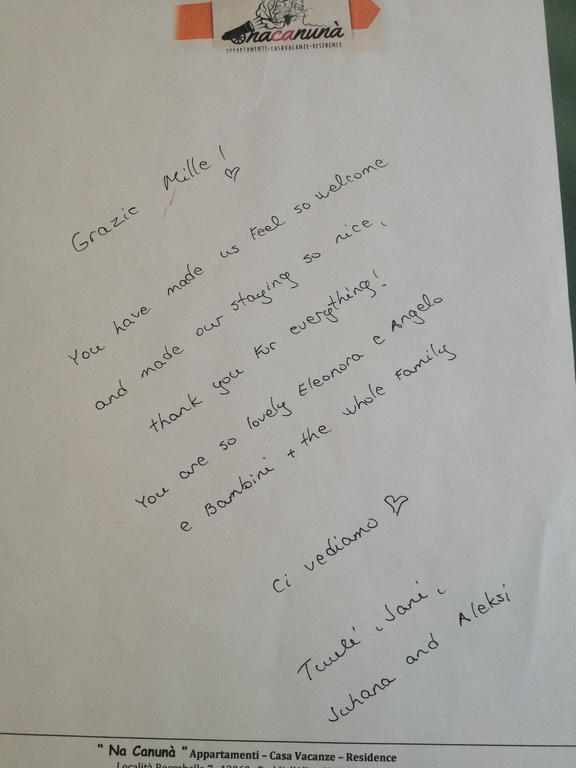 nacanunà
APPARTAMENTI-CASAVACANZE-RESIDENCE
Grazie Mille!
You have made us feel so welcome
and made our staying so nice,
thank you for everything!
You are so lovely Eleonora e Angelo
e Bambini + the whole family
Ci vediamo
Tuuli, Jani,
Juhana and Aleksi
" Na Canunà " Appartamenti – Casa Vacanze – Residence
Località